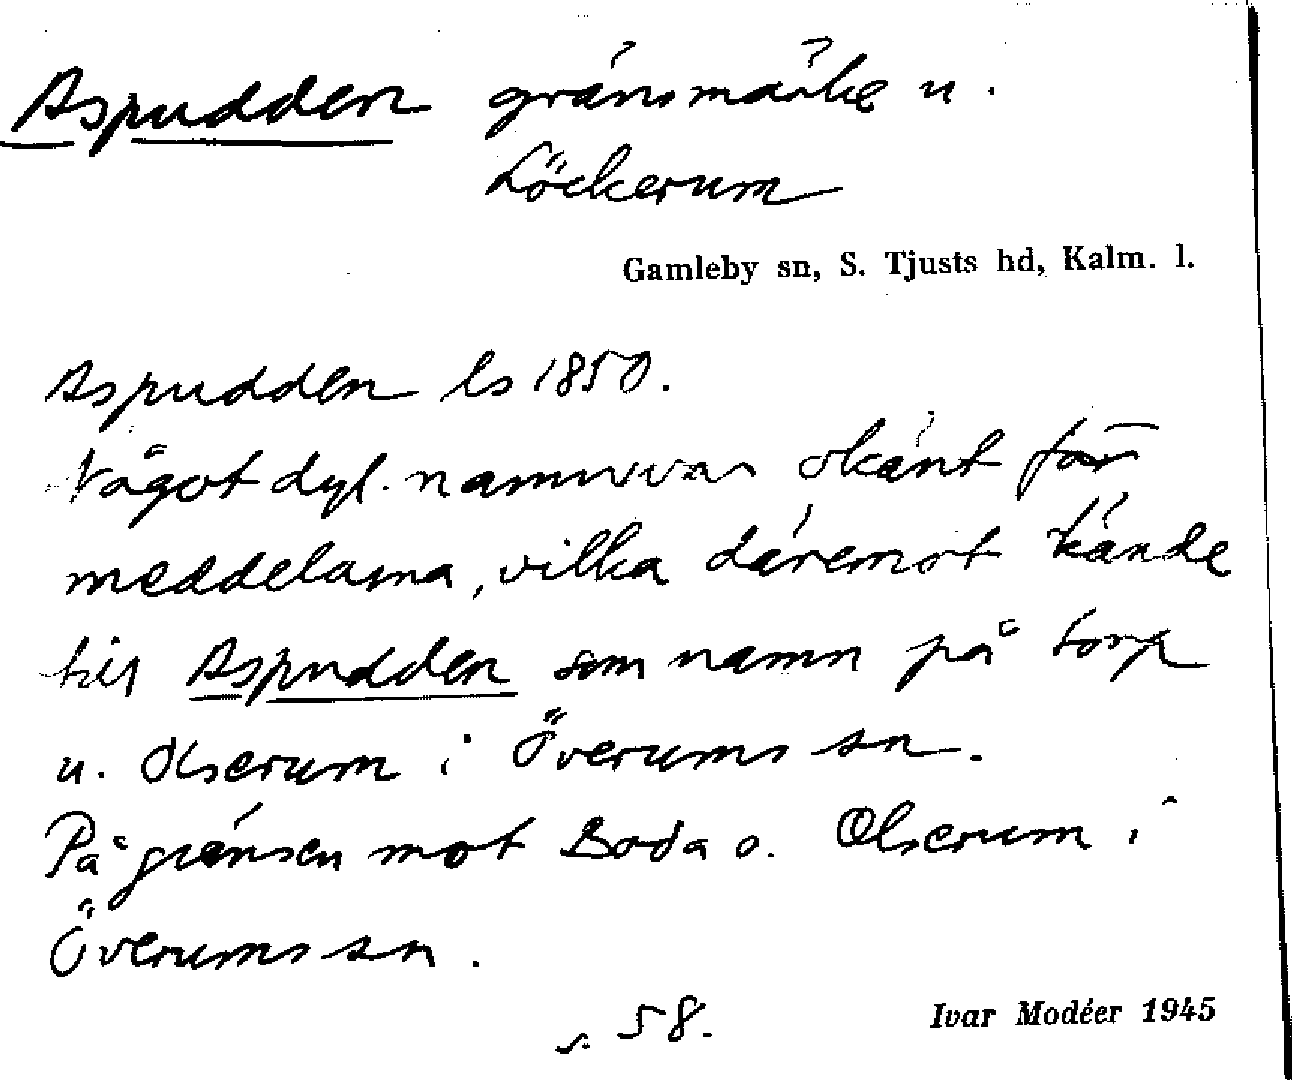 Aspudden gränsmärke u.
Löckerum
Gamleby sn, S. Tjusts hd, Kalm. l.
Aspudden ls 1850.
Något dyl. namn var okänt för
meddelarna, vilka däremot kände
till Aspudden som namn på torp
u. Olserum i Överums sn.
På gränsen mot Boda o. Olserum i
Överums sn.
s. 58.
Ivar Modéer 1945